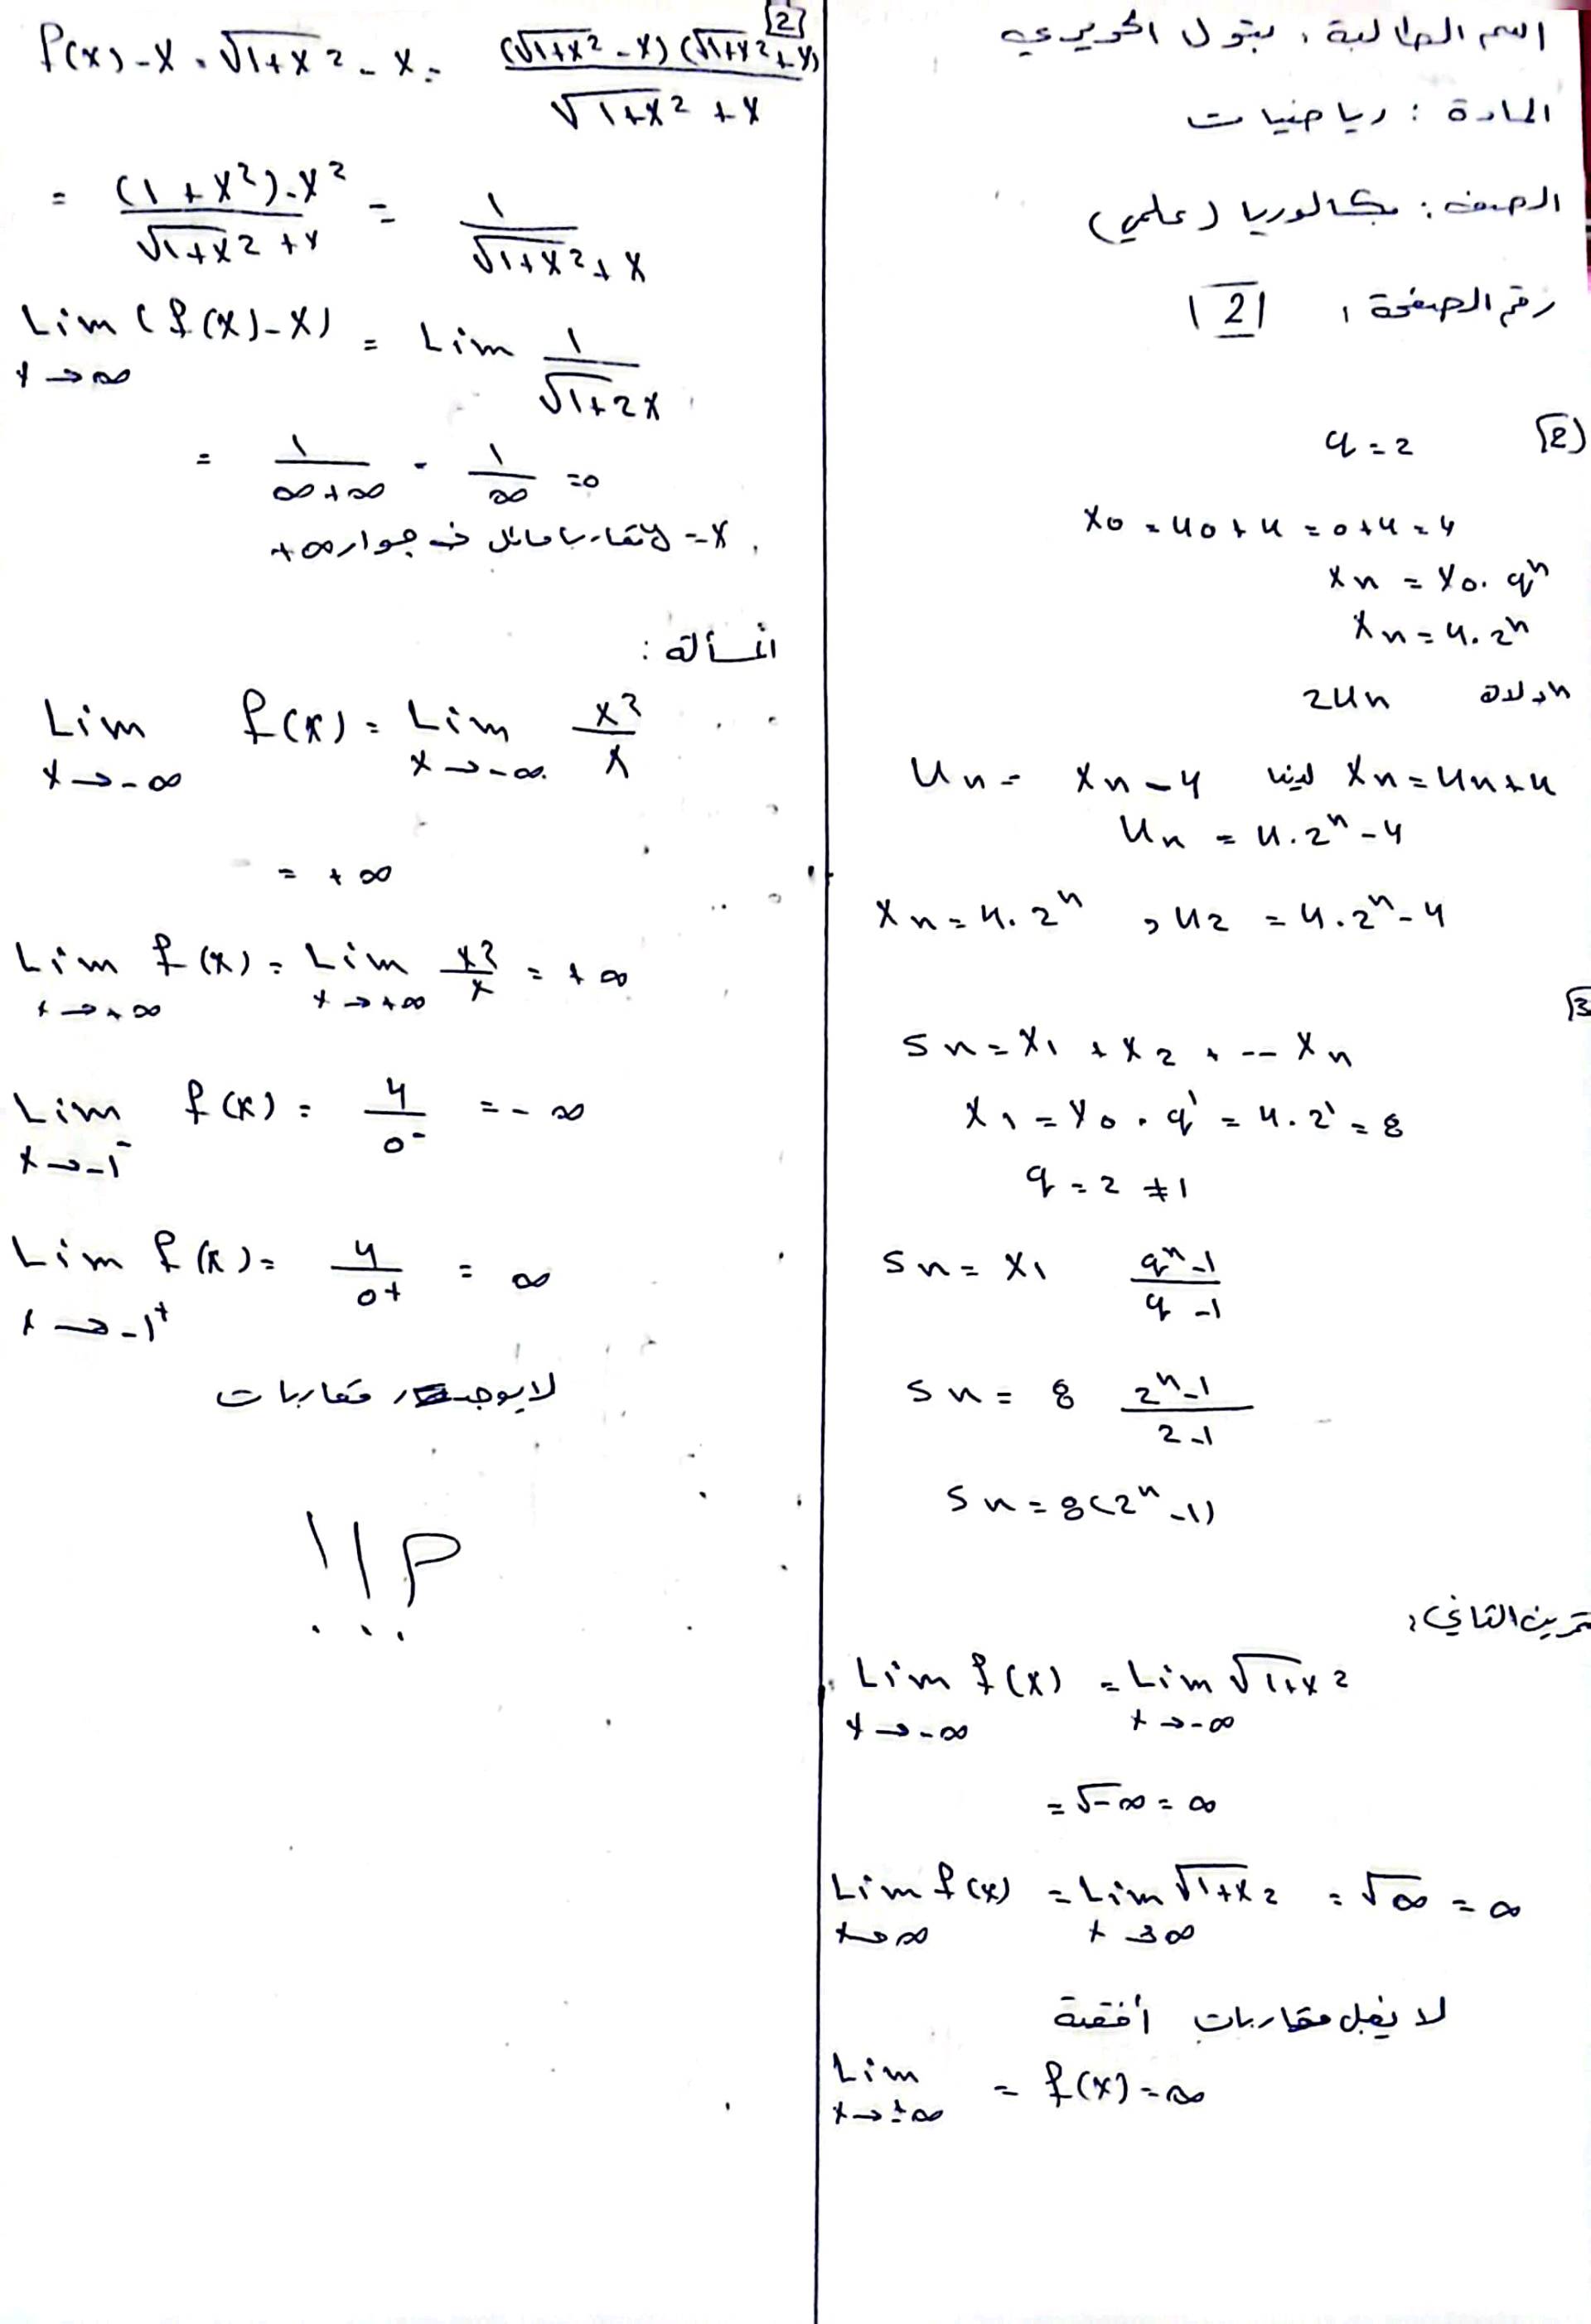 اسم الطالبة : بتول الحريري
المادة : رياضيات
الصف : بكالوريا (علمي)
رقم الصفحة : 2
2) q = 2
x0 = u0 + 4 = 0 + 4 = 4
xn = x0 . q^n
xn = 4 . 2^n
un بدلالة n
un = xn - 4 لدينا xn = un + 4
un = 4 . 2^n - 4
xn = 4 . 2^n , u2 = 4 . 2^n - 4
3
Sn = x1 + x2 + -- xn
x1 = x0 . q^1 = 4 . 2^1 = 8
q = 2 ≠ 1
Sn = x1 (q^n - 1)/(q - 1)
Sn = 8 (2^n - 1)/(2 - 1)
Sn = 8(2^n - 1)
تمرين الثاني :
Lim f(x) = Lim √1+x2
x → -∞ x → -∞
= √-∞ = ∞
Lim f(x) = Lim √1+x2 = √∞ = ∞
x → ∞ x → ∞
لا يقبل مقاربات أفقية
Lim = f(x) = ∞
x → ±∞
2
f(x) - x = √1+x2 - x = (√1+x2 - x)(√1+x2 + x) / √1+x2 + x
= (1 + x^2) - x^2 / √1+x2 + x = 1 / √1+x2 + x
Lim (f(x) - x) = Lim 1 / √1+2x
x → ∞
= 1/(∞+∞) = 1/∞ = 0
y = x مقارب مائل في جوار +∞
المسألة :
Lim f(x) = Lim x2/x
x → -∞ x → -∞
= +∞
Lim f(x) = Lim x2/x = +∞
x → +∞ x → +∞
Lim f(x) = 4/0- = -∞
x → -1^-
Lim f(x) = 4/0+ = ∞
x → -1^+
لا يوجد مقاربات